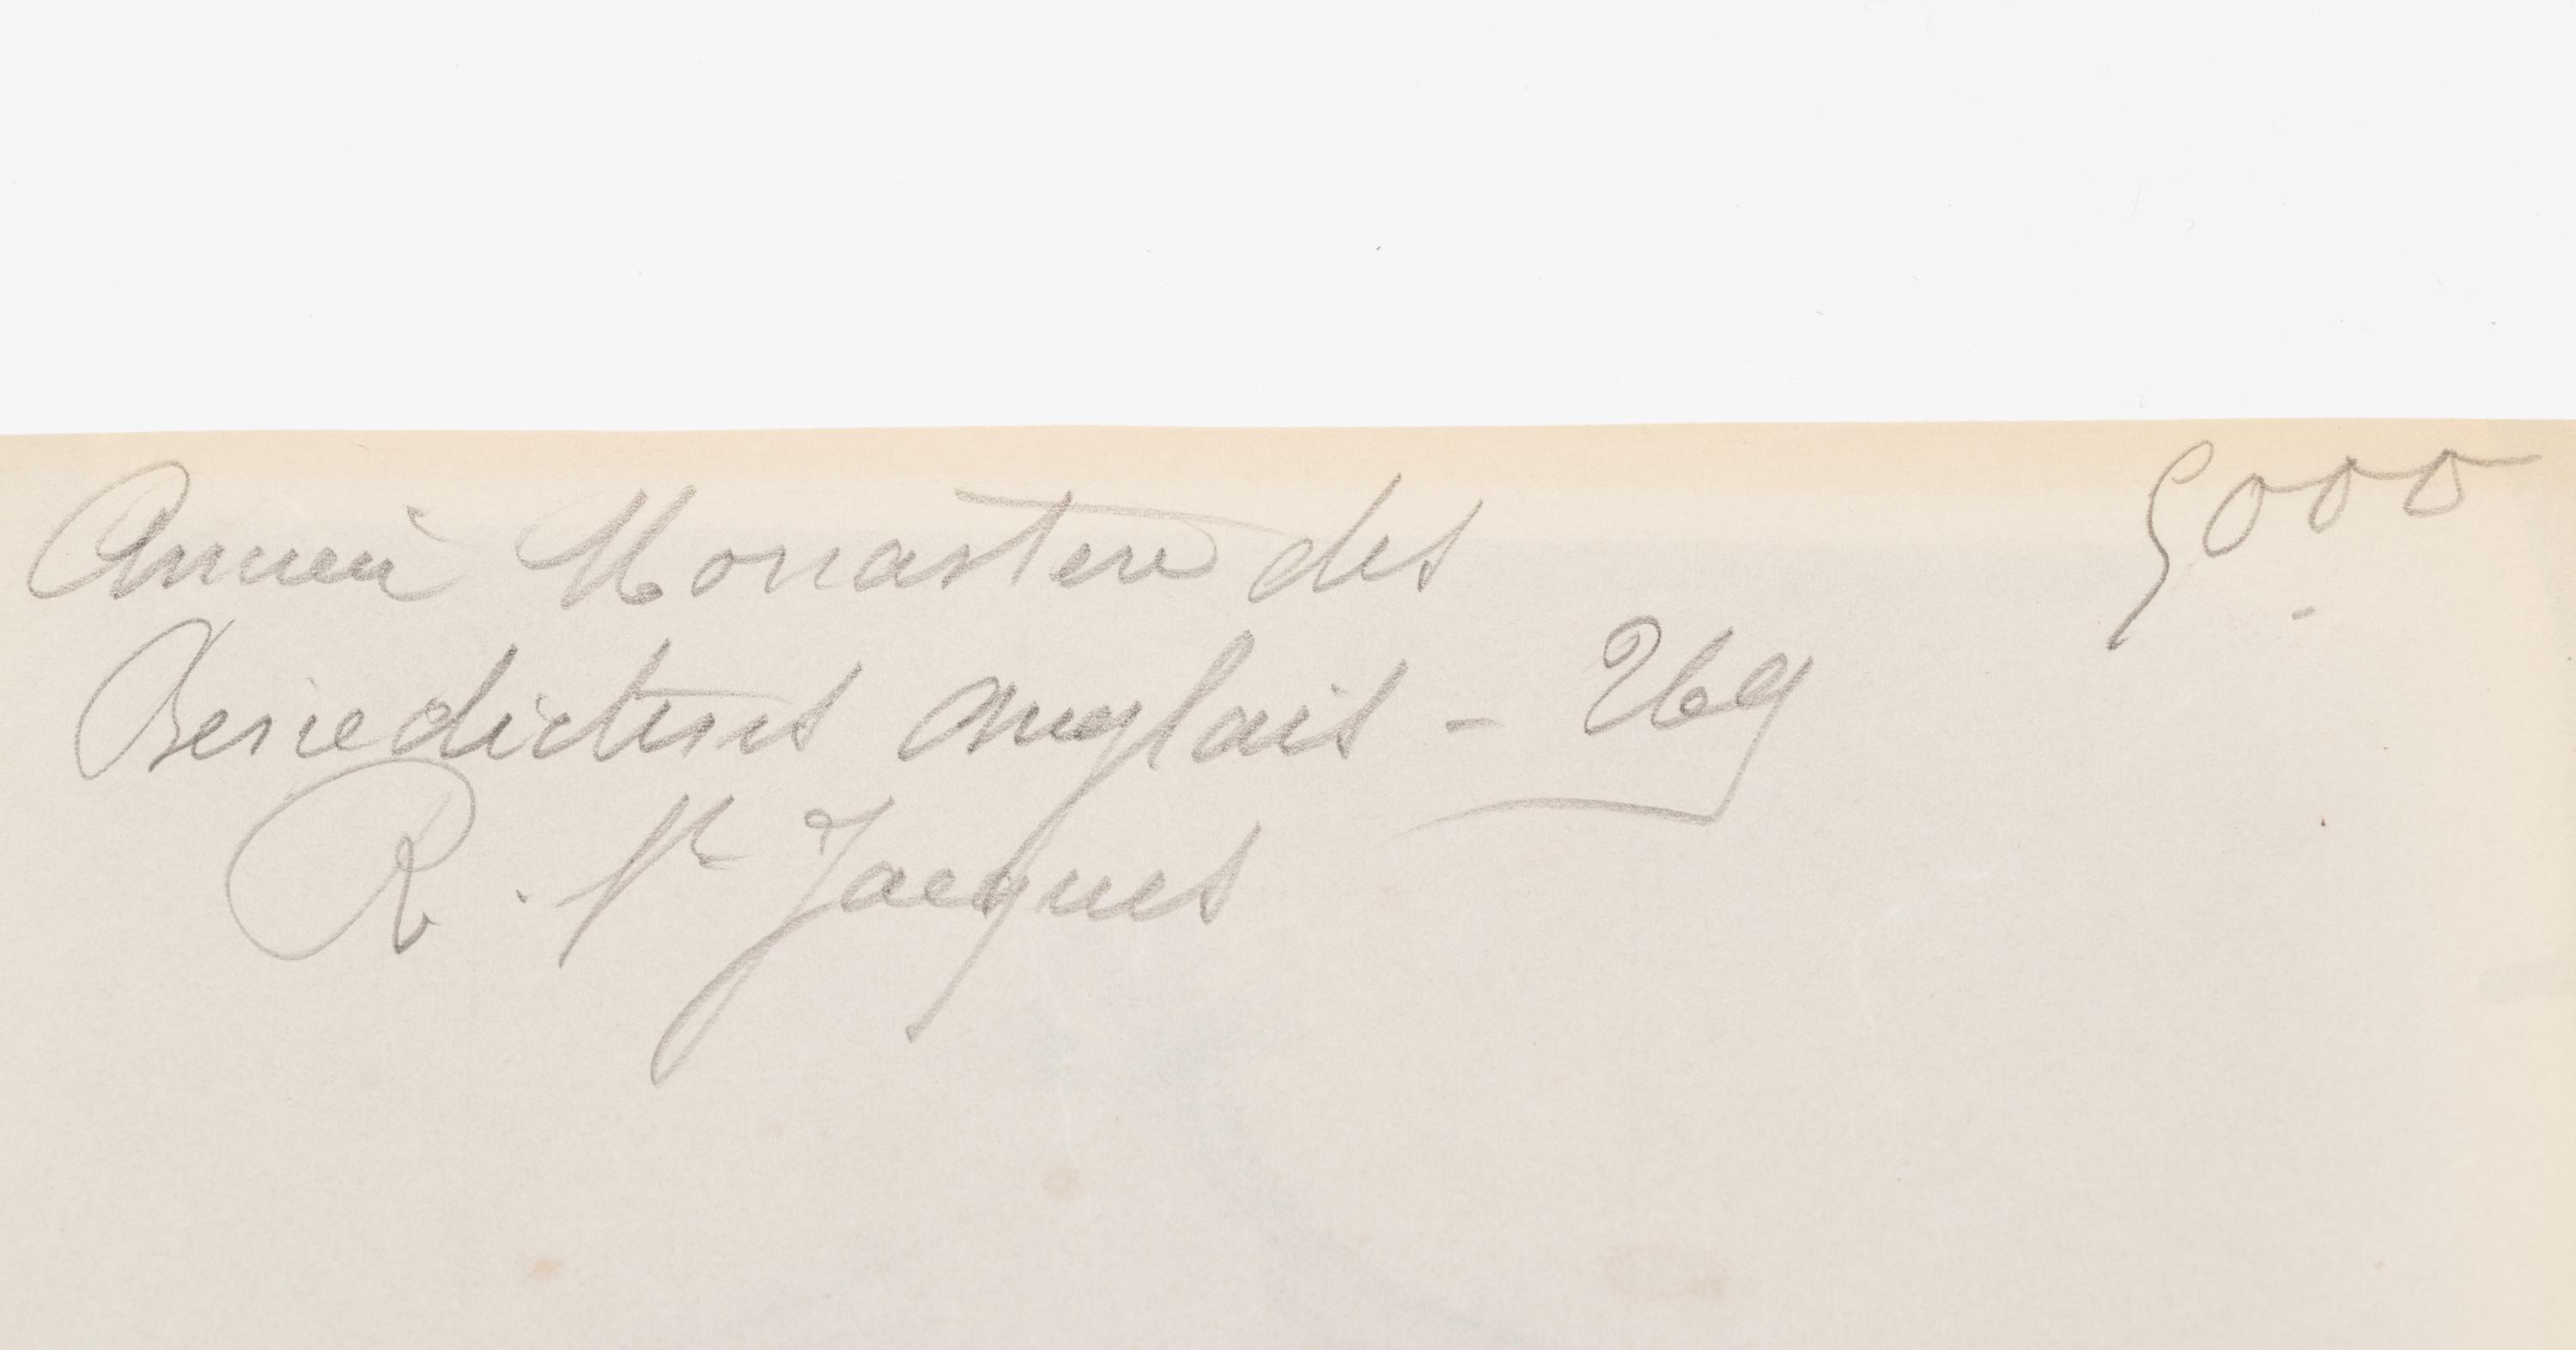 Ancien Monastere des
Benedictins Anglais - 269
R. St Jacques
5000